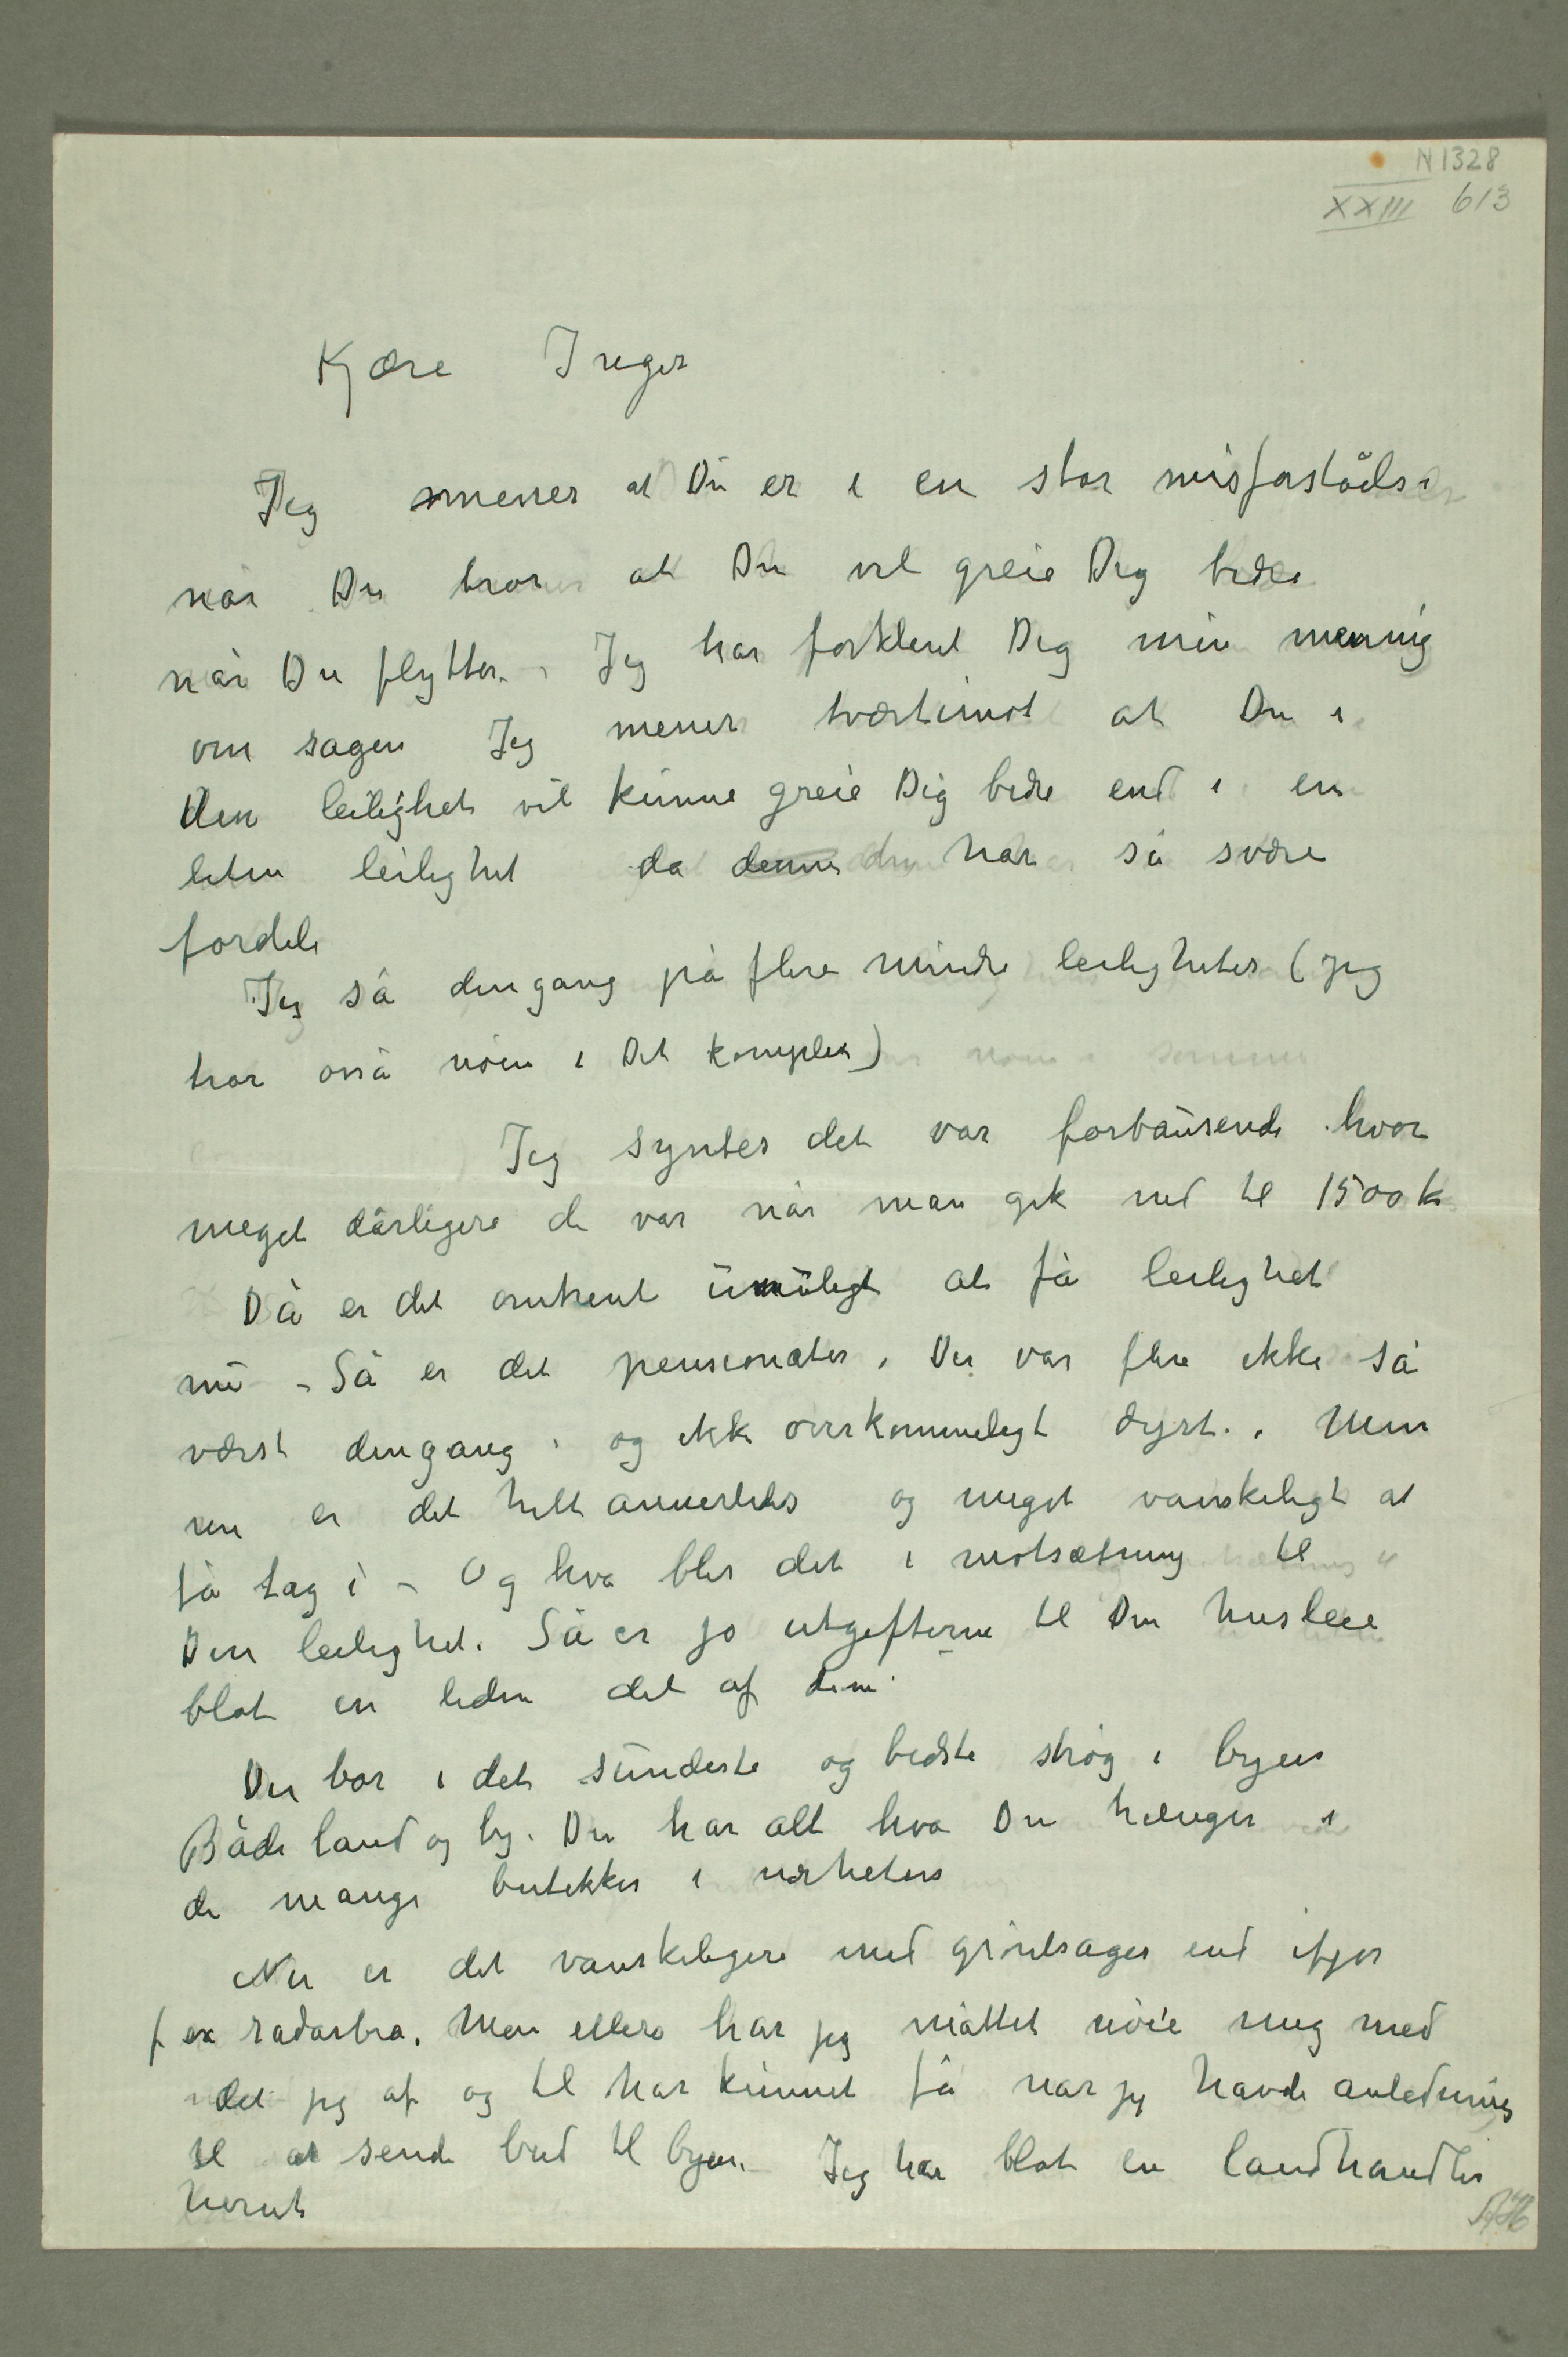 N 1328
XXIII 613
Kjære Inger
Jeg mener at Du er i en stor misforståelse
når Du tror at Du vil greie Dig bedre
når Du flytter. – Jeg har forklaret Dig min mening
om sagen Jeg mener tværtimot at Du i
Den leilighet vil kunne greie Dig bedre end i en
liten leilighet da denne den har så svære
fordele
Jeg så dengang på flere mindre leiligheter (jeg
tror osså nöen i Det komplex)
Jeg syntes det var forbausende hvor
meget dårligere de var når man gik ned til 1500 k
Då er det omtrent umuligt at få leilighet
nu – Så er det pensionater, Der var flere ikke så
værst dengang og ikke overkommeligt dyrt. Men
nu er det helt annerledes og meget vanskeligt at
få tag i – Og hva blir det i motsætning til
Din leilighet. Så er jo utgifterne til Din husleie
blot en liden del af dem
Du bor i det sundeste og bedste strøg i byen
Både land og by. Du har alt hva Du trænger i
de mange butikker i nærheten
Nu er det vanskeligere med grönsager end ifjor
f ex rabarbra. Men ellers har jeg måttet nöie mig med
det jeg af og til har kunnet få når jeg havde anledning
til at sende bud til byen. Jeg har blot en landhandler
herut